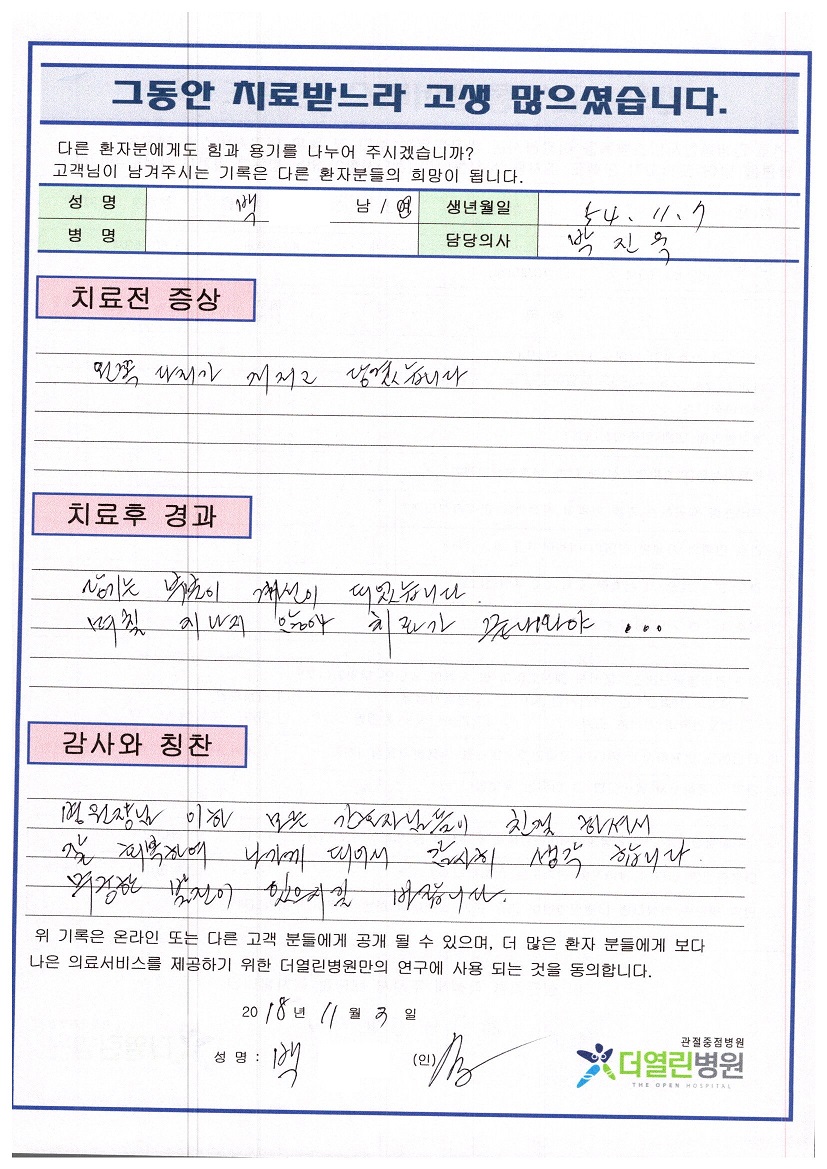 그동안 치료받느라 고생 많으셨습니다.
다른 환자분에게도 힘과 용기를 나누어 주시겠습니까?
고객님이 남겨주시는 기록은 다른 환자분들의 희망이 됩니다.
성 명 백 남 / 여 생년월일 54. 11. 7
병 명 담당의사 박진옥
치료전 증상
왼쪽 다리가 저리고 당겼습니다
치료후 경과
당기는 개선이 되었습니다.
며칠 지나지 않아 치료가 끝내와야 ...
감사와 칭찬
병원장님 이하 모든 간호사님들이 친절 하셔서
잘 회복하여 나가게 되어서 감사히 생각 합니다.
무궁한 발전이 있으시길 바랍니다.
위 기록은 온라인 또는 다른 고객 분들에게 공개 될 수 있으며, 더 많은 환자 분들에게 보다
나은 의료서비스를 제공하기 위한 더열린병원만의 연구에 사용 되는 것을 동의합니다.
2018년 11월 3일
성 명 : 백 (인)
관절중점병원
더열린병원
THE OPEN HOSPITAL